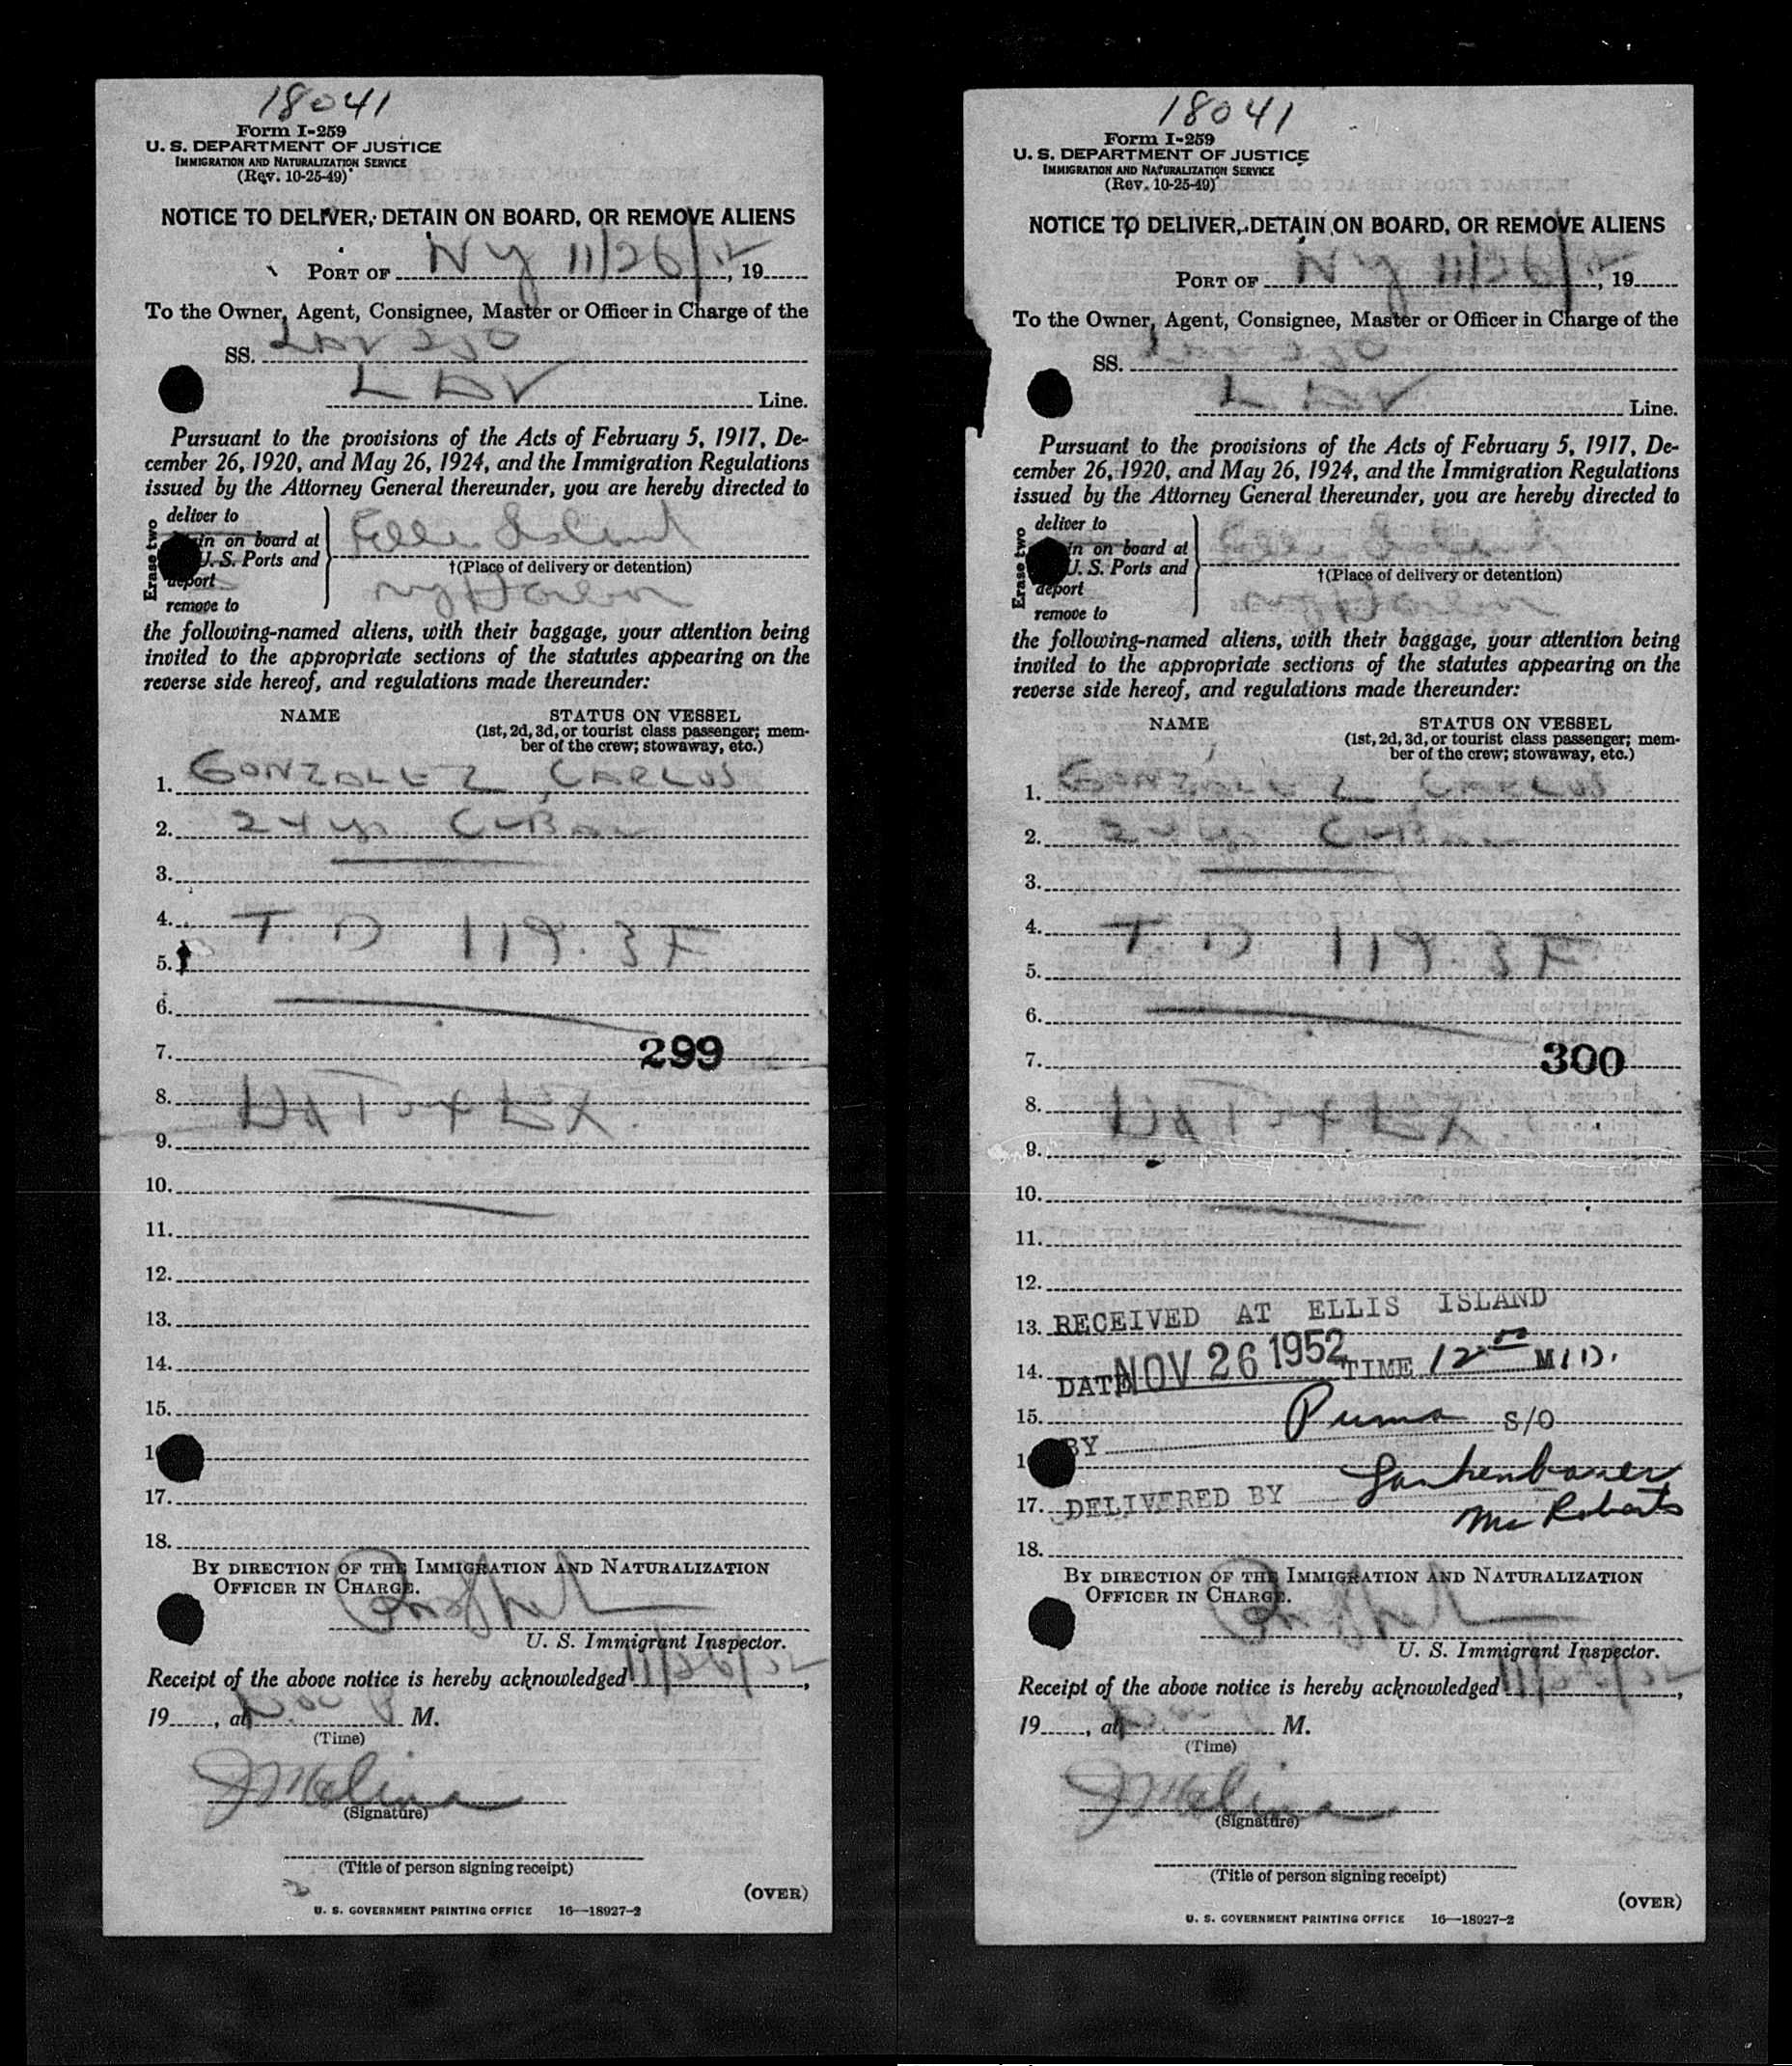 18041
Form I-259
U. S. DEPARTMENT OF JUSTICE
IMMIGRATION AND NATURALIZATION SERVICE
(Rev. 10-25-49)
NOTICE TO DELIVER, DETAIN ON BOARD, OR REMOVE ALIENS
PORT OF NY 11/26/52, 19
To the Owner, Agent, Consignee, Master or Officer in Charge of the
SS. LAV 250
LAV Line.
Pursuant to the provisions of the Acts of February 5, 1917, De-
cember 26, 1920, and May 26, 1924, and the Immigration Regulations
issued by the Attorney General thereunder, you are hereby directed to
Erase two
deliver to
in on board at
U. S. Ports and
deport
remove to
Ellis Island
†(Place of delivery or detention)
NY Harbor
the following-named aliens, with their baggage, your attention being
invited to the appropriate sections of the statutes appearing on the
reverse side hereof, and regulations made thereunder:
NAME STATUS ON VESSEL
(1st, 2d, 3d, or tourist class passenger; mem-
ber of the crew; stowaway, etc.)
1. GONZALEZ, CARLOS
2. 24 yr CUBAN
3.
4. T. D 119.3F
5.
6.
7. 299
8.
9.
10.
11.
12.
13.
14.
15.
1
17.
18.
BY DIRECTION OF THE IMMIGRATION AND NATURALIZATION
OFFICER IN CHARGE.
U. S. Immigrant Inspector.
Receipt of the above notice is hereby acknowledged 11/26/52,
19, at M.
(Time)
J Molina
(Signature)
(Title of person signing receipt)
(OVER)
U. S. GOVERNMENT PRINTING OFFICE 16—18927-2
18041
Form I-259
U. S. DEPARTMENT OF JUSTICE
IMMIGRATION AND NATURALIZATION SERVICE
(Rev. 10-25-49)
NOTICE TO DELIVER, DETAIN ON BOARD, OR REMOVE ALIENS
PORT OF NY 11/26/52, 19
To the Owner, Agent, Consignee, Master or Officer in Charge of the
SS. LAV 250
LAV Line.
Pursuant to the provisions of the Acts of February 5, 1917, De-
cember 26, 1920, and May 26, 1924, and the Immigration Regulations
issued by the Attorney General thereunder, you are hereby directed to
Erase two
deliver to
in on board at
U. S. Ports and
deport
remove to
Ellis Island
†(Place of delivery or detention)
NY Harbor
the following-named aliens, with their baggage, your attention being
invited to the appropriate sections of the statutes appearing on the
reverse side hereof, and regulations made thereunder:
NAME STATUS ON VESSEL
(1st, 2d, 3d, or tourist class passenger; mem-
ber of the crew; stowaway, etc.)
1. GONZALEZ, CARLOS
2. 24 yr CUBAN
3.
4. T. D 119.3F
5.
6.
7. 300
8.
9.
10.
11.
12.
13. RECEIVED AT ELLIS ISLAND
14. DATE NOV 26 1952 TIME 12 00 M
15. Puma S/O
1 BY
17. DELIVERED BY Lankenbauer
Mc Roberts
18.
BY DIRECTION OF THE IMMIGRATION AND NATURALIZATION
OFFICER IN CHARGE.
U. S. Immigrant Inspector.
Receipt of the above notice is hereby acknowledged 11/26/52,
19, at M.
(Time)
J Molina
(Signature)
(Title of person signing receipt)
(OVER)
U. S. GOVERNMENT PRINTING OFFICE 16—18927-2